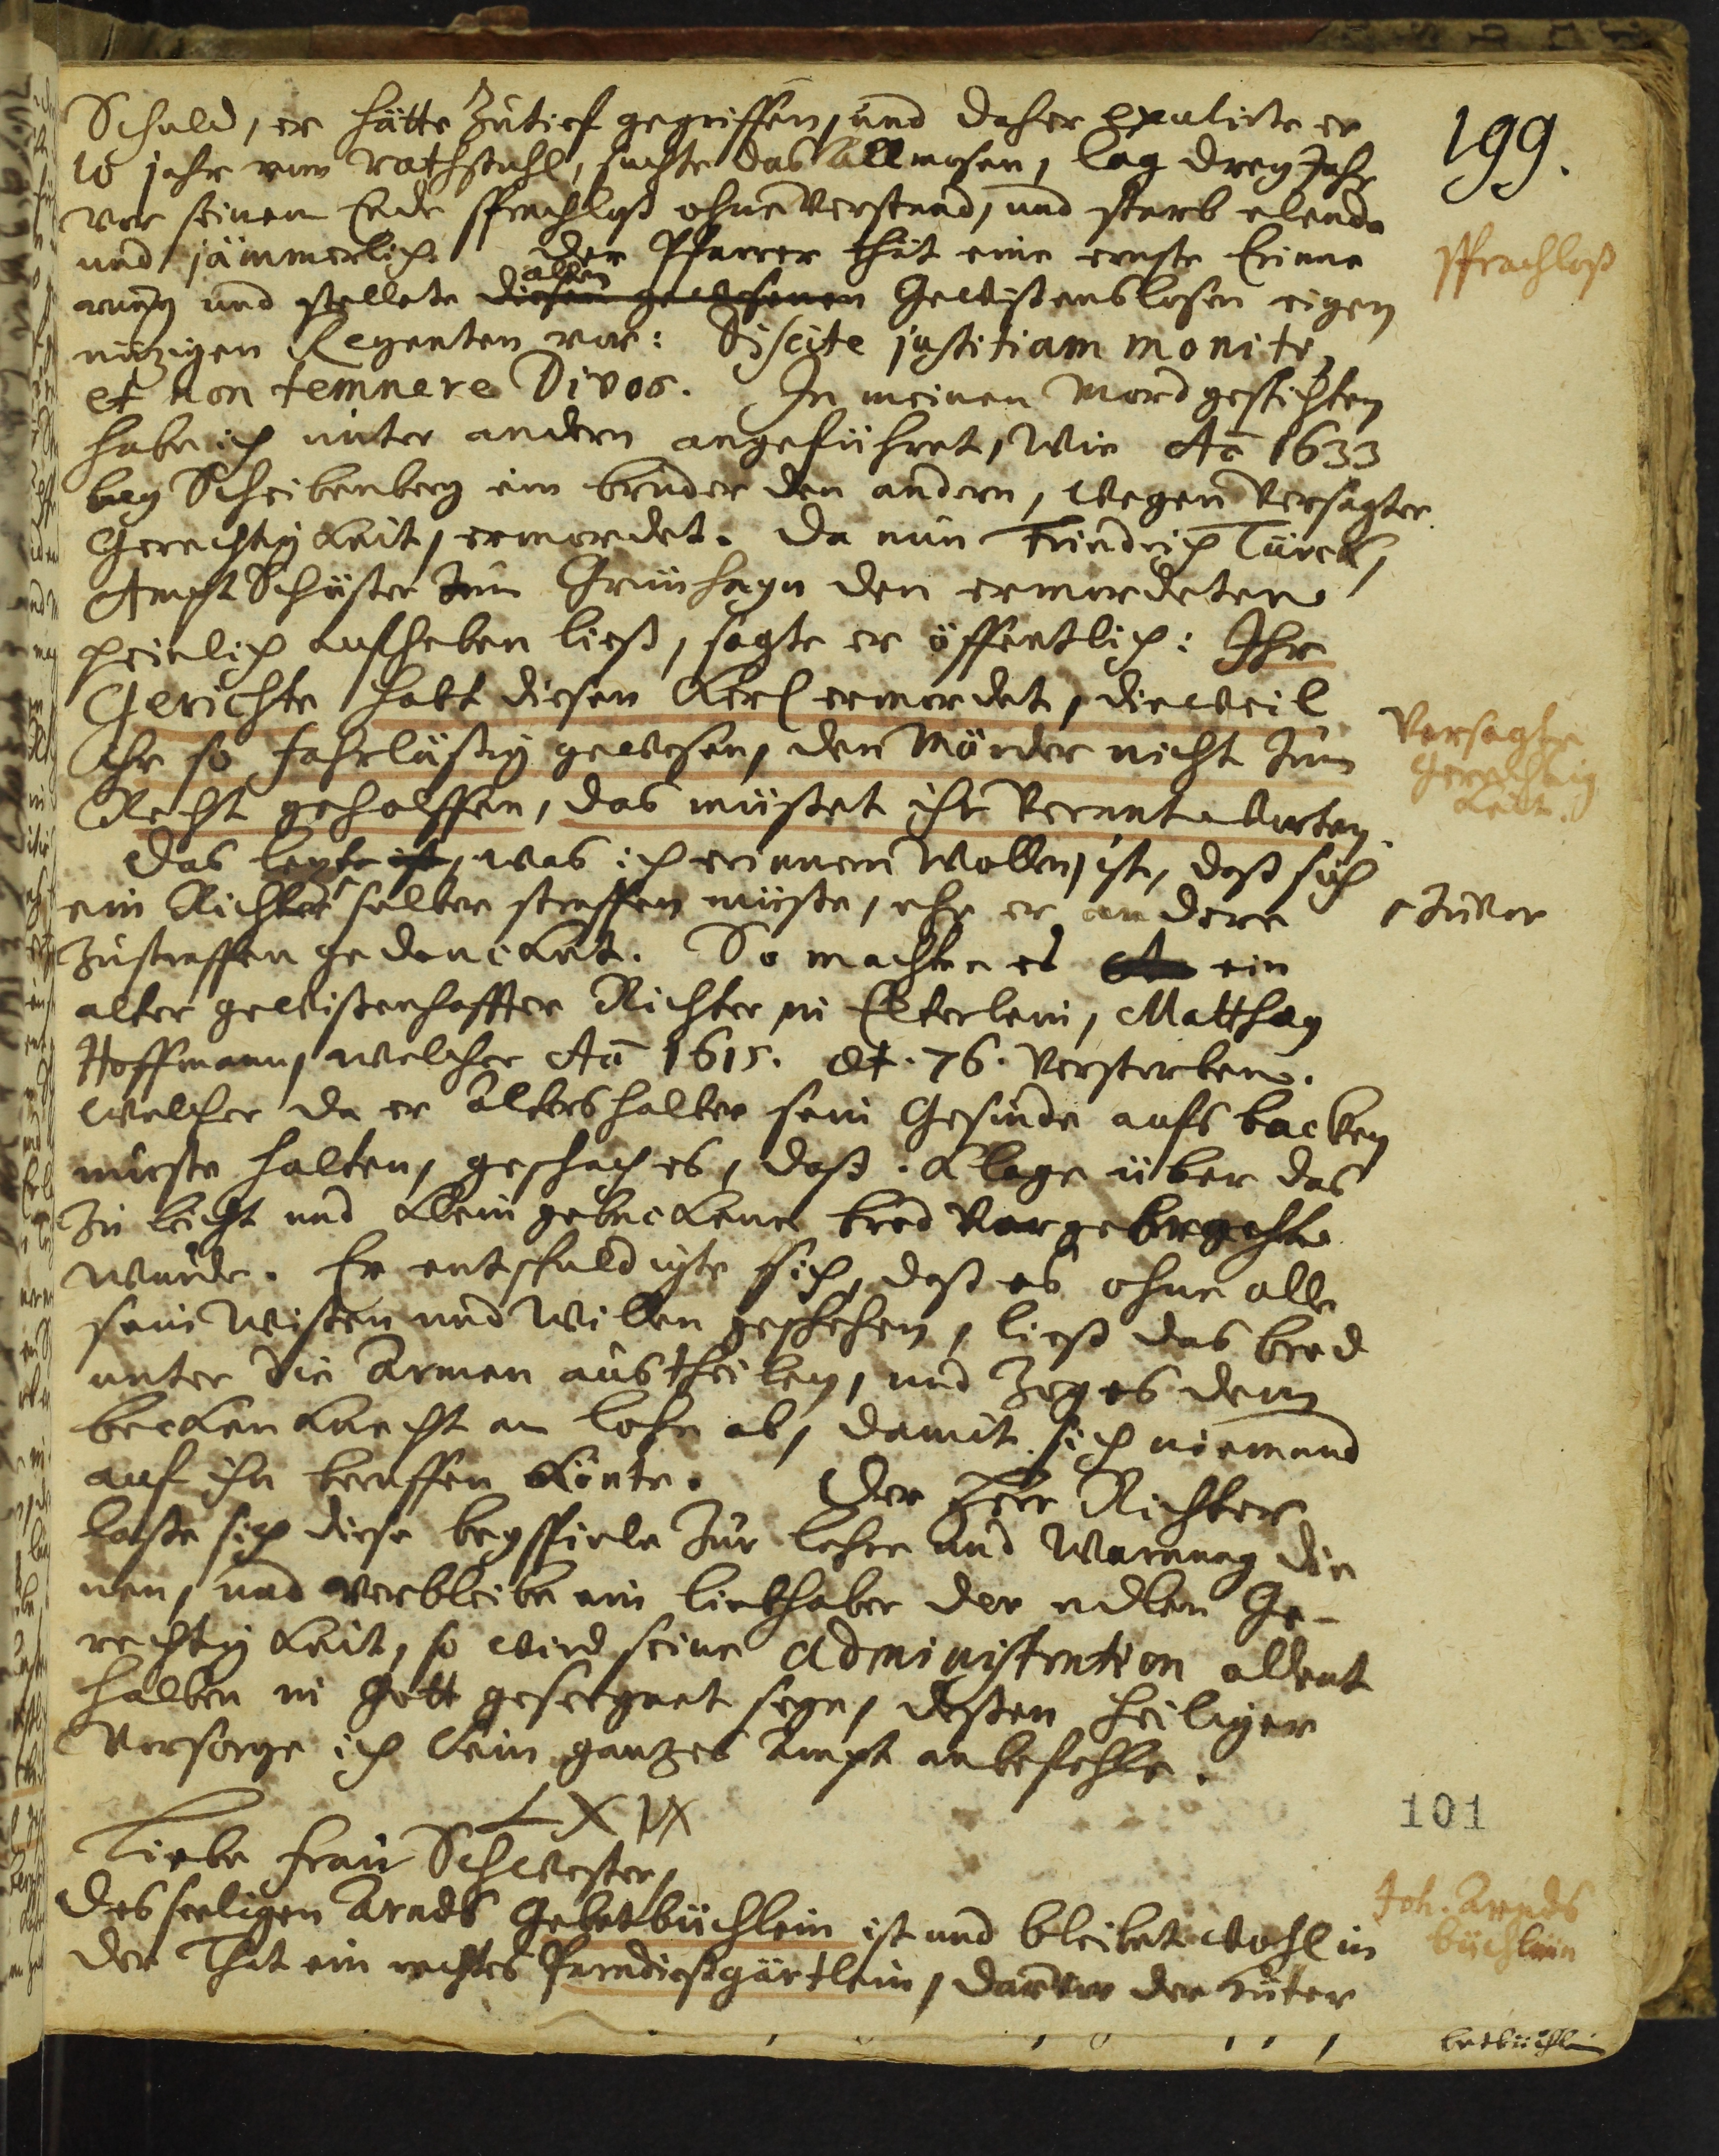 199.
Schuld, er hätte zutief gegriffen, und daher exulirte er
10 jahr vom Rathstuhl, suchte das Allmosen, lag drey Jahr
vor seinem Ende sprachloß ohne Verstand, und starb elend
und jämmerlich. Der Pfarrer thät eine ernste Erinne
rung und stellete diesen gewesenen allen Gewissenslosen eigen
nützigen Regenten vor: Discite justitiam moniti,
et non temnere Divos. In meinen Mordgeschichten
habe ich unter andern angeführet, wie Aō 1633
bey Scheibenberg ein bruder den andern, wegen versagter
Gerechtigkeit, ermordet. Da nun Friedrich Türck,
Ampt Schüßer zum Grünhayn den ermordeten
peinlich aufheben ließ, sagte er öffentlich: Ihr
Gerichte habt diesen Kerl ermordet, dieweil
Ihr so fahrläßig gewesen, den Mörder nicht zum
Recht geholffen, das müsset ihr verantworten.
Das letzte ist, was ich erinnern wollen, ist, daß sich
ein Richter selber straffen müste, ehe er andere
zustraffen gedencket. So machte es ein
alter gewissenhaffter Richter in Elterlein, Matthæy
Hoffmann, welcher Aō 1615. æt. 76. verstorben.
Welcher da er Alters halber sein Gesinde aufs backen
muste halten, geschach es, daß Klage über das
zu leicht und klein gebackene brod vorgebracht
wurde. Er entschuldigte sich, daß es ohne all
sein Wissen und Willen geschehen, ließ das brod
unter die Armen austheilen, und zog es dem
becken Knecht am lohn ab, damit sich niemand
auf ihn beruffen könte. Der Herr Richter
lasse sich diese beyspiele zur lehre und Warnung die
nen, und verbleibe ein liebhaber der edlen Ge-
rechtigkeit, so wird seine Administration allent
halben in Gott gesegnet seyn, dessen heiliger
Vorsorge ich sein gantzes Ampt anbefehle.
LXIX
Liebe Frau Schwester,
Des seeligen Arnds Gebetbüchlein ist und bleibet wohl in
der That ein rechtes Paradießgärtlein, darein der
sprachloß
Versagte
Gerechtig
keit.
zuvor
101
Joh. Arnds
büchlein
betbüchlein